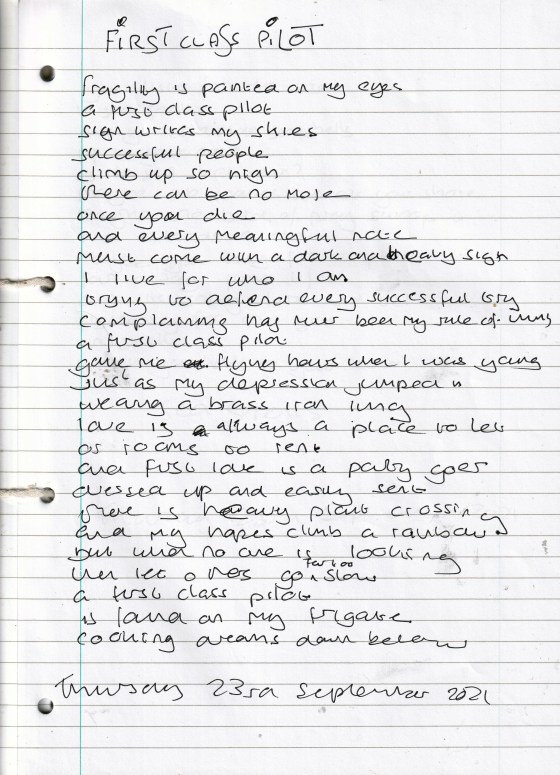 FIRST CLASS PILOT
fragility is painted on my eyes
a first class pilot
sign writes my skies
successful people
climb up so high
there can be no more
once you die
and every meaningful note
must come with a dark and heavy sigh
I live for who I am
trying to defend every successful try
complaining has never been my rule of
a first class pilot
gave me flying hours when I was young
just as my depression jumped in
wearing a brass iron lung
love is always a place to let
or rooms to rent
and first love is a party goer
dressed up and easily sent
there is heavy plant crossing
and my hopes climb a rainbow
but when no one is looking
then let others go far too slow
a first class pilot
is found on my frigate
cooking dreams down below
Thursday 23rd September 2021